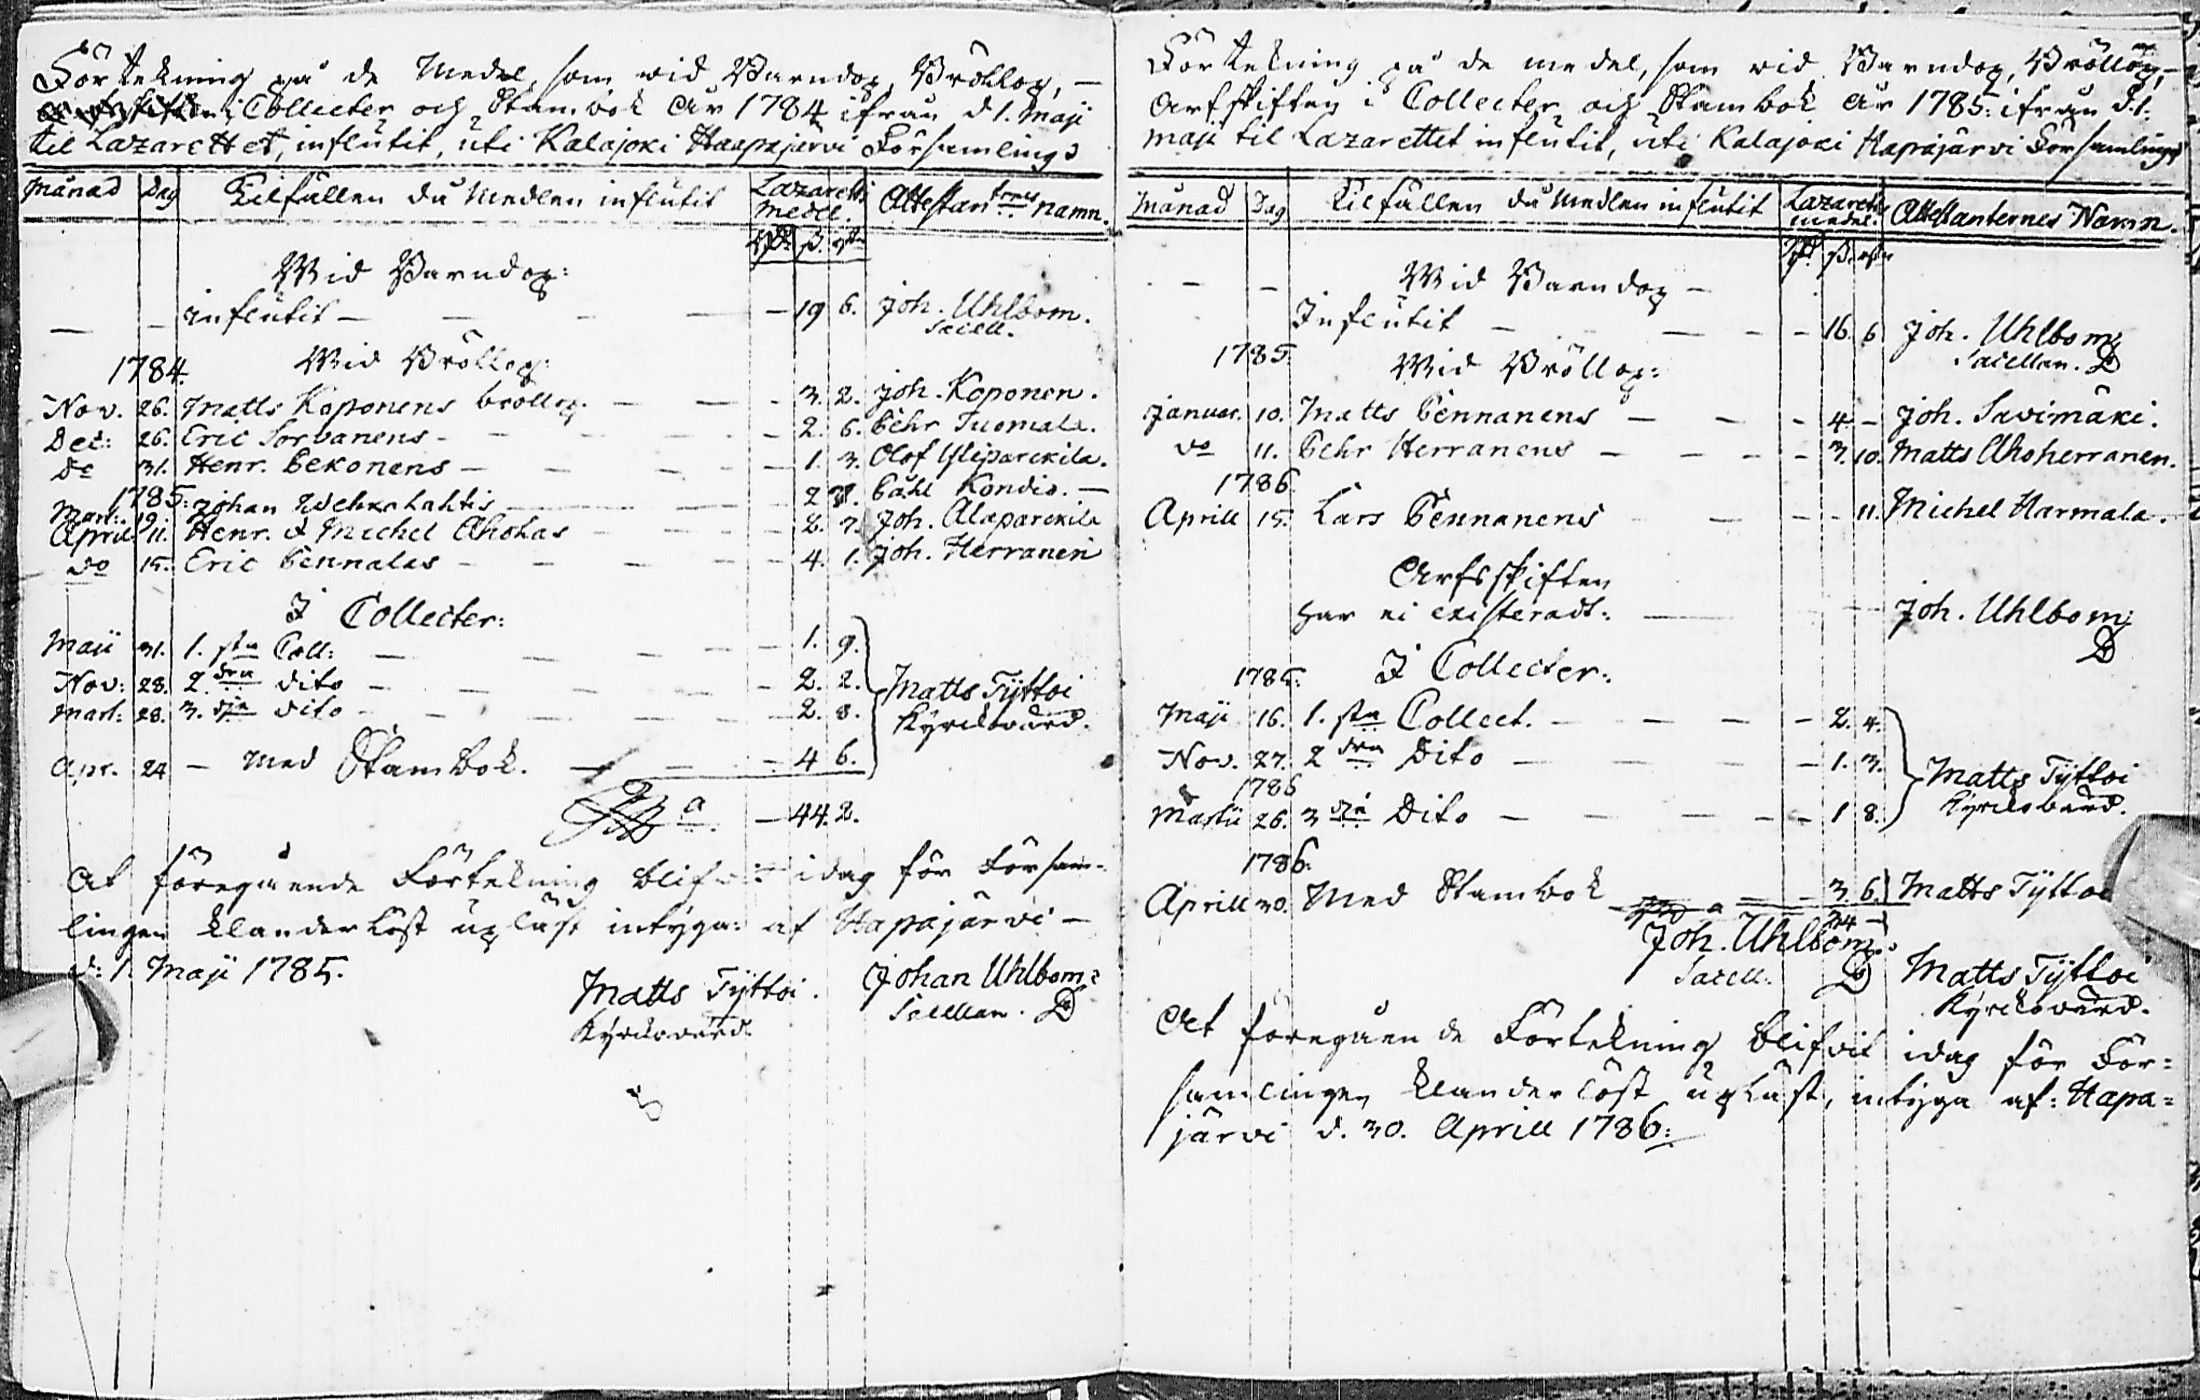 Förtekning på de Medel, som wid Barndop, Bröllop, —
Collecter och Stambok År 1784 ifrån d 1. Maji
til Lazarettet, influtit, uti Kalajoki Haapajärvi Församling:
Månad Dag Tilfällen då Medlen influtit Lazaretts Medel. Attestanternes namn.
Rd. ß. rst.
Wid Barndop:
— — influtit — — — — 19 6. Joh. Uhlbom.
Sacell.
1784. Wid Bröllop:
Nov. 26. Matts Koponens bröllop. — — - 3. 2. Joh. Koponen.
Dec: 26. Eric Sorvanens - - - - 2. 6. Pehr Tuomala.
Do 31. Henr. Pekonens — - - - 1. 3. Olof Yliparckila.
1785:
Mart: 19. Johan Lahtis — 2 Påhl Kondio. —
April 11. Henr. & Michel Ahohas - - - 2. 7. Joh. Alaparckila
do 15. Eric Pennalas - - - - 4. 1. Joh. Herranen
I Collecter:
Maii 31. 1. sta Coll: — - - - 1. 9.
Nov: 28. 2. dra dito - - - - 2. 2. Matts Tyttoi
Mart: 28. 3. dje dito - - - - 2. 8. Kyrckovärd.
Apr. 24 — Med Stambok. — - - 4 6.
Sa — 44. 2.
At föregående Förtekning blifvit idag för Försam-
lingen klanderlöst upläst intygar af Hapajärvi —
d: 1. Maji 1785.
Matts Tyttoi. Johan Uhlbom:
Kyrckovärd. Sacellan.
Förtekning på de medel, som wid Barndop, Bröllop, —
Arfskiften i Collecter och Stambok År 1785: ifrån d. 1:
Maji til Lazarettet influtit, uti Kalajoki Hapajärvi Församling
Månad Dag Tilfällen då Medlen influtit Lazaretts medel. Attestanternes Namn.
Rd. ß. rst.
- - Wid Barndop —
Influtit — — - - 16. 6 Joh. Uhlbom
1785. Sacellan.
Wid Bröllop:
Januar. 10. Matts Pennanens — — - - 4 - Joh. Savimäki.
do 11. Pehr Herranens — - - - 3. 10. Matts Ahoherranen.
1786
Aprill 15. Lars Pennanens - - - - 11. Michel Harmala.
Arfsskiften
har ei existeradt: — — Joh. Uhlbom
1785: I Collecter:
Maji 16. 1. sta Collect. — - - - 2. 4.
Nov. 27. 2 dra Dito — - - - 1. 3. Matts Tyttoi
1786
Martii 26. 3 dje Dito — - - - 1 8. Kyrckovärd.
1786:
Aprill 30. Med Stambok — 3 6. Matts Tyttoi
Sa 34 —
Joh. Uhlbom.
Sacell. Matts Tyttoi
Kyrckovärd.
At föregående Förtekning blifvit idag för För=
samlingen klanderlöst upläst, intyga af: Hapa=
järvi d. 30. Aprill 1786: